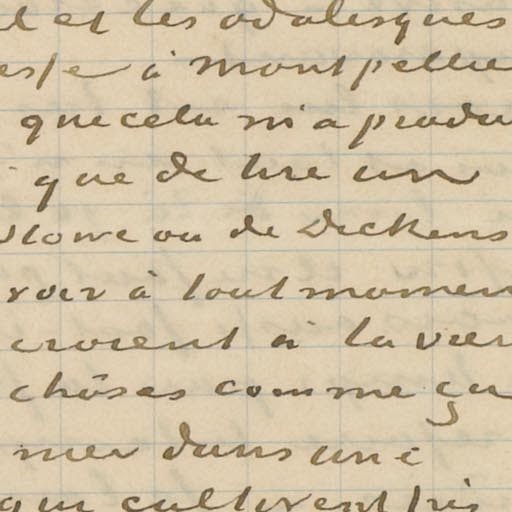 et les odalesques
à Montpellie
que cela m'a produ
que de lire un
Stowe ou de Dickens
voir à tout momen
croient à la vier
chôses comme ça
mer dans une
qui cultivent très